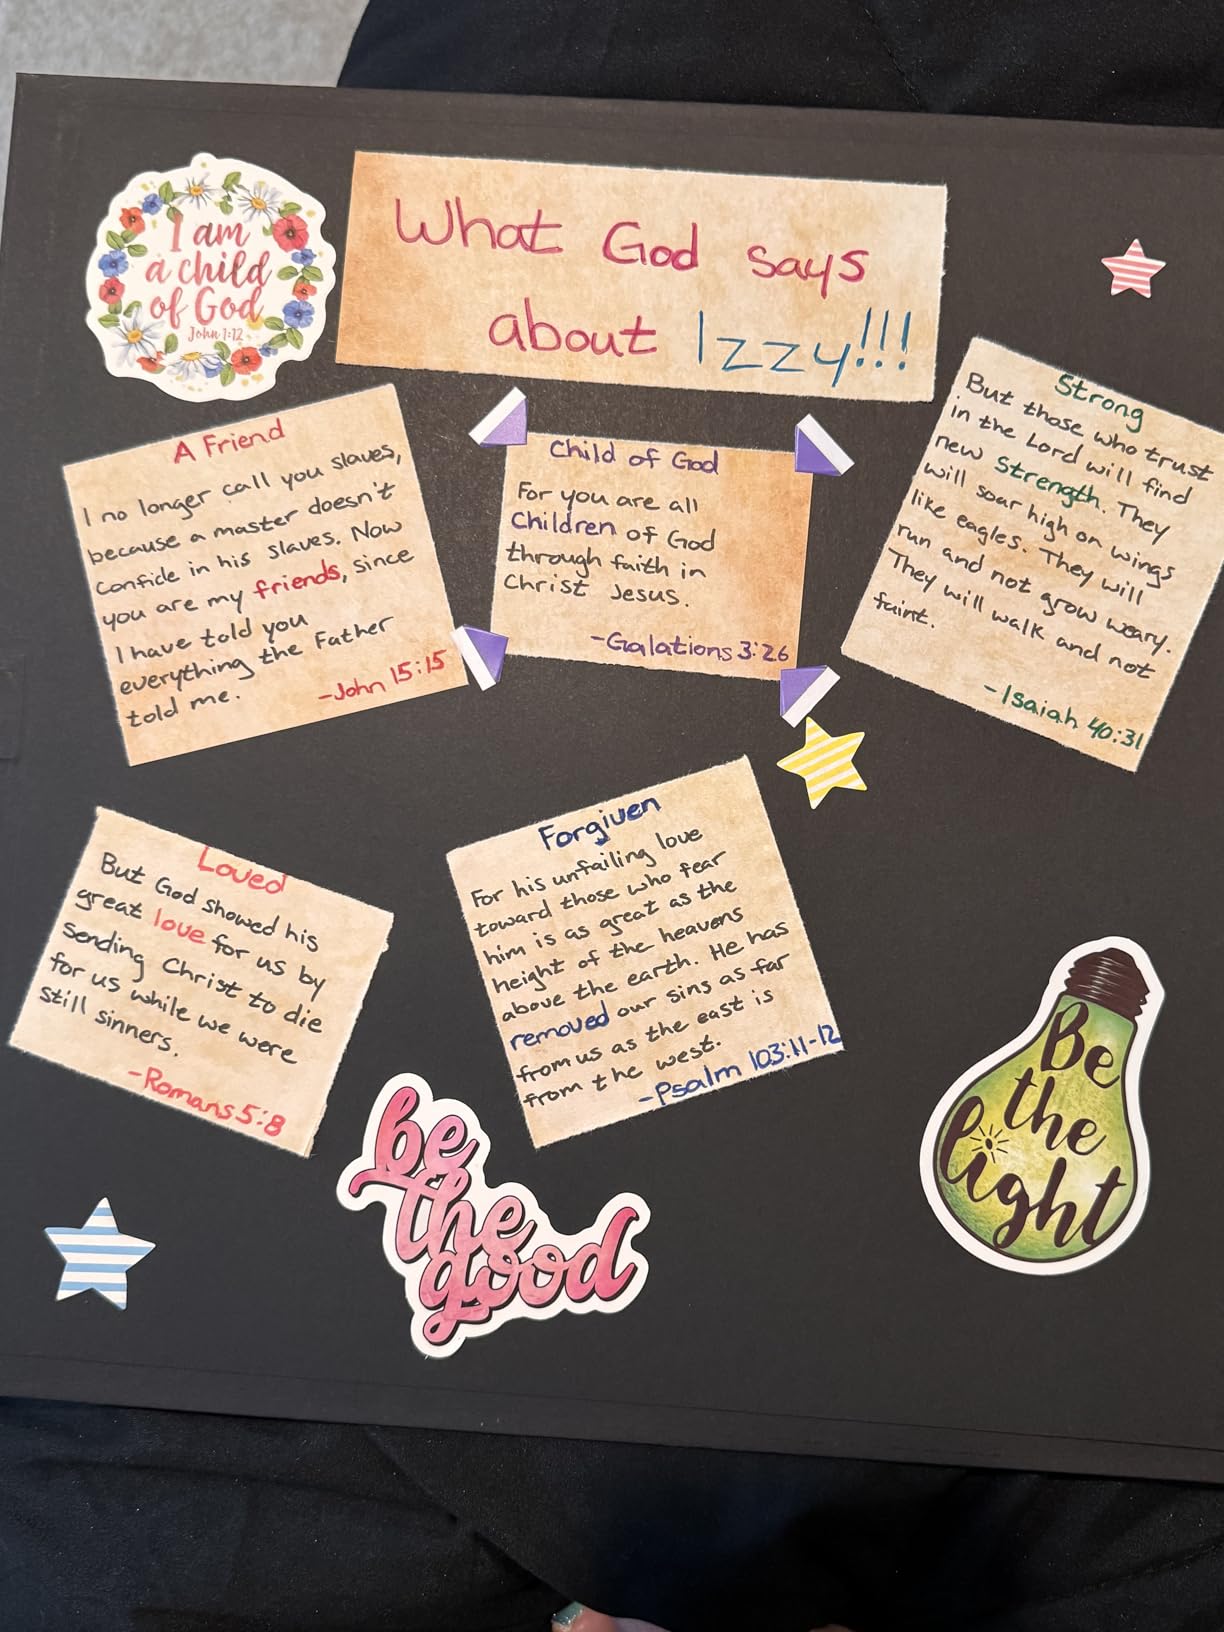 I am
a child
of God
John 1:12
What God says
about Izzy!!!
A Friend
I no longer call you slaves,
because a master doesn't
confide in his slaves. Now
you are my friends, since
I have told you
everything the Father
told me.
-John 15:15
Child of God
For you are all
Children of God
through faith in
Christ Jesus.
-Galations 3:26
Strong
But those who trust
in the Lord will find
new Strength. They
will soar high on wings
like eagles. They will
run and not grow weary.
They will walk and not
faint.
-Isaiah 40:31
Loved
But God showed his
great love for us by
sending Christ to die
for us while we were
still sinners.
-Romans 5:8
Forgiven
For his unfailing love
toward those who fear
him is as great as the
height of the heavens
above the earth. He has
removed our sins as far
from us as the east is
from the west.
-Psalm 103:11-12
be
the
good
Be
the
light